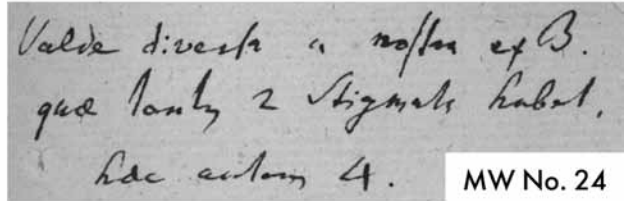 Valde diversa a nostra ex B.
quæ tantum 2 stigmata habet,
hæc autem 4.
MW No. 24